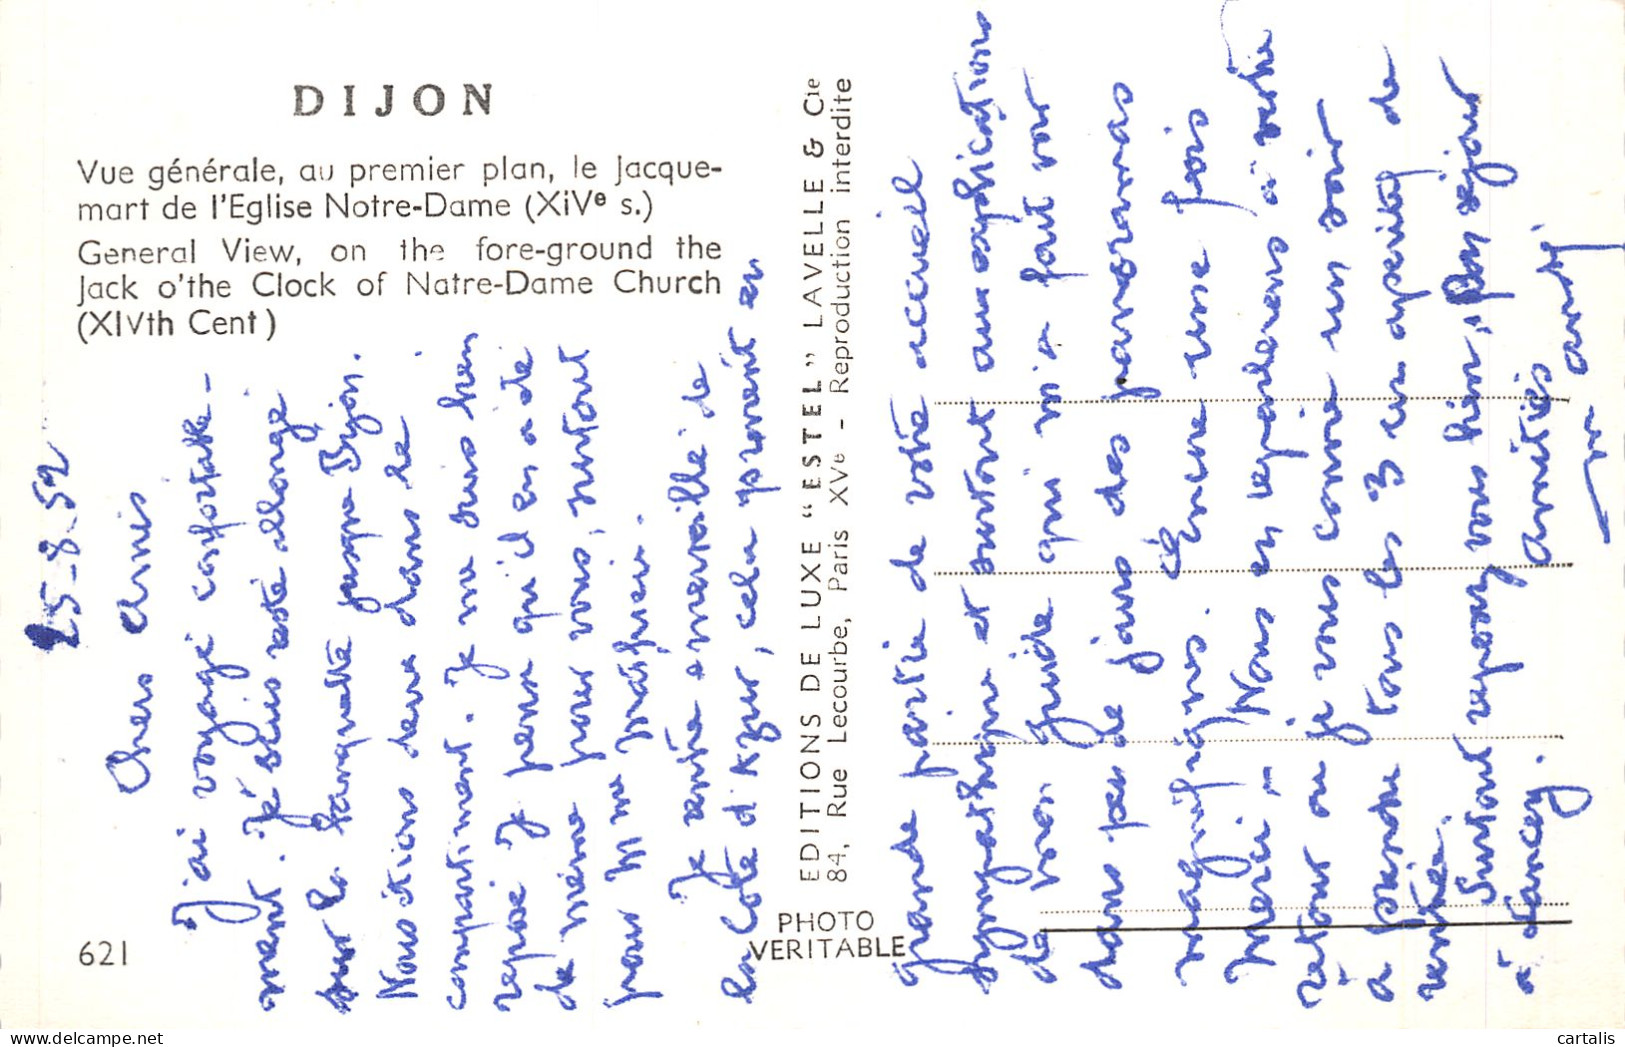 DIJON
Vue générale, au premier plan, le Jacque-
mart de l'Eglise Notre-Dame (XiVe s.)
General View, on the fore-ground the
Jack o'the Clock of Natre-Dame Church
(XIVth Cent)
621
EDITIONS DE LUXE "ESTEL" LAVELLE & Cie
84, Rue Lecourbe, Paris XVe - Reproduction interdite
PHOTO
VERITABLE
25-8-52
Chers Amis
J'ai voyagé confortable-
ment. Je suis resté allongé
sur la banquette jusque Dijon.
Nous étions deux dans le
compartiment. Je me suis bien
reposé. Je pense qu'il en a été
de même pour vous, surtout
pour Mme
Je rentre émerveillé de
la Côte d'Azur, cela provient en
grande partie de votre accueil
sympathique et surtout aux explications
de mon guide qui m'a fait voir
dans peu de jours des panoramas
magnifiques. Encore une fois
merci - Nous en reparlerons à votre
retour ou je vous convie un soir
à prendre tous les 3 un apéritif de
rentrée.
Surtout reposez vous bien, bon séjour
à Vancey.
Amitiés